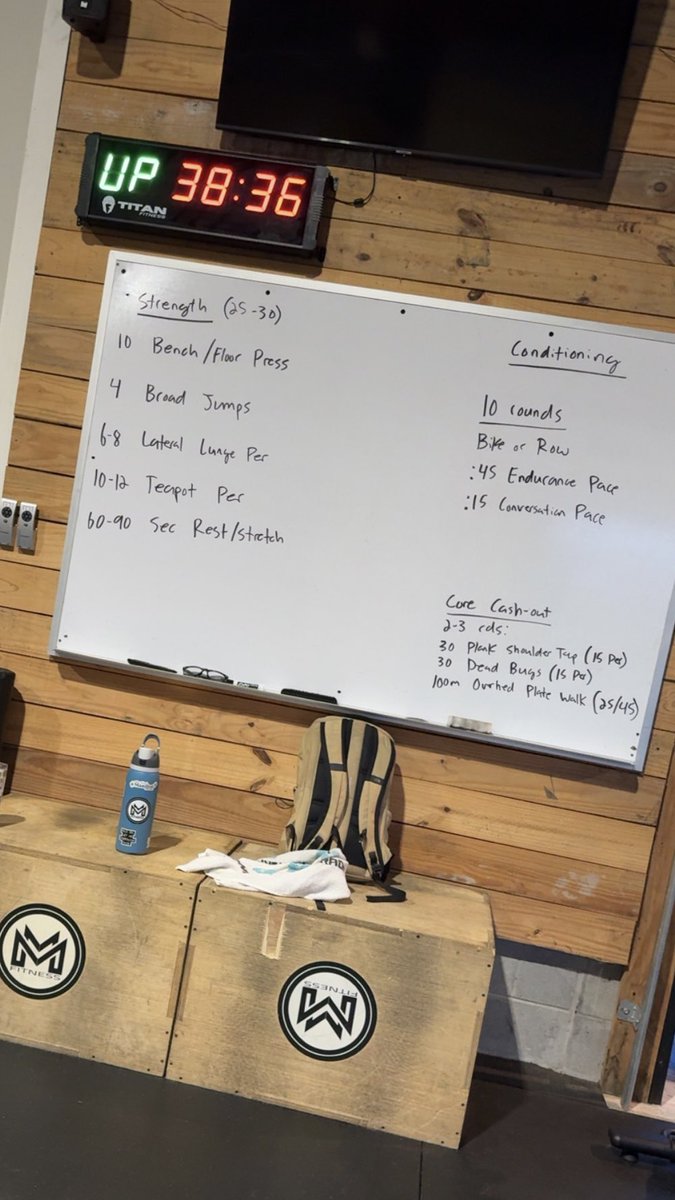 UP 38:36
TITAN
FITNESS
Strength (25-30)
10 Bench/Floor Press
4 Broad Jumps
6-8 Lateral Lunge Per
10-12 Teapot Per
60-90 Sec Rest/Stretch
Conditioning
10 rounds
Bike or Row
:45 Endurance Pace
:15 Conversation Pace
Core Cash-out
2-3 rds:
30 Plank Shoulder Tap (15 Per)
30 Dead Bugs (15 Per)
100m Overhed Plate Walk (25/45)
FITNESS
FITNESS